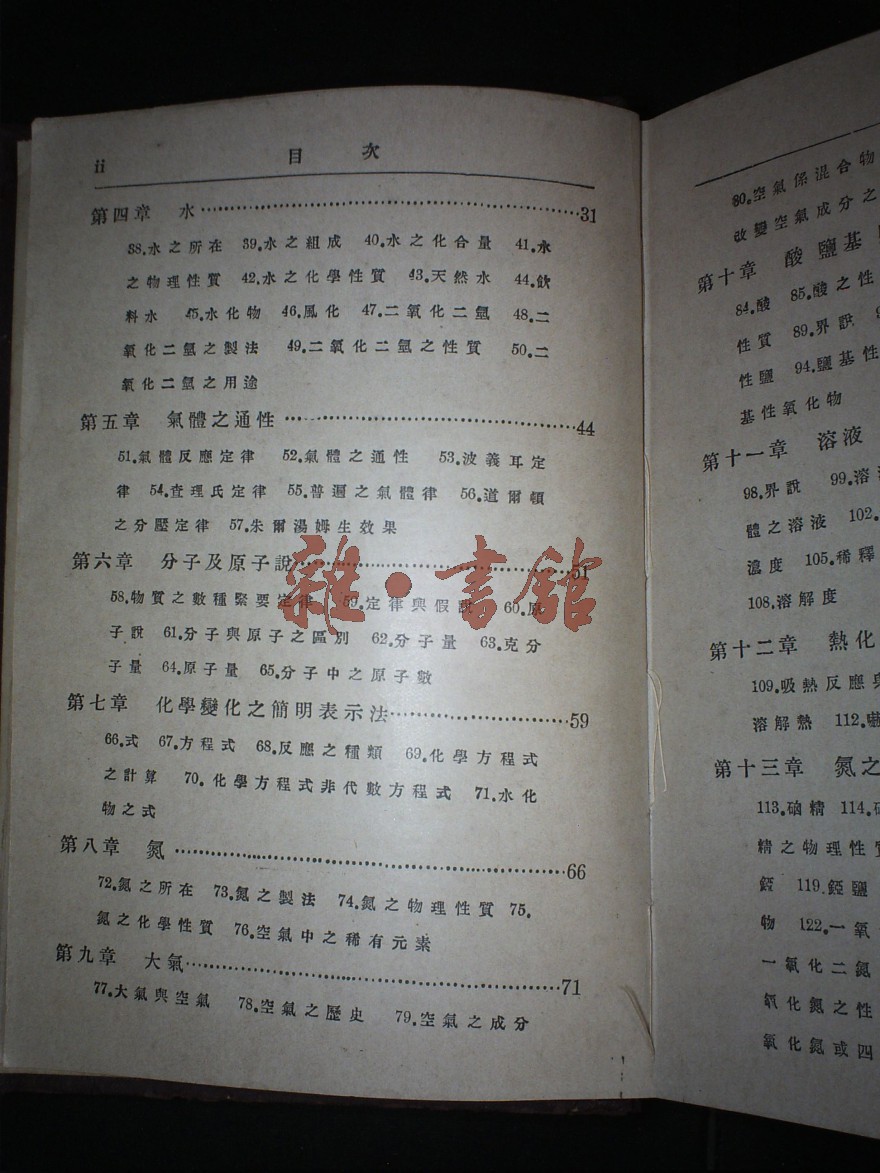 ii 目次
第四章 水…………31
38.水之所在 39.水之組成 40.水之化合量 41.水
之物理性質 42.水之化學性質 43.天然水 44.飲
料水 45.水化物 46.風化 47.二氧化二氫 48.二
氧化二氫之製法 49.二氧化二氫之性質 50.二
氧化二氫之用途
第五章 氣體之通性…………44
51.氣體反應定律 52.氣體之通性 53.波義耳定
律 54.查理氏定律 55.普遍之氣體律 56.道爾頓
之分壓定律 57.朱爾湯姆生效果
第六章 分子及原子說…………51
58.物質之數種緊要定律 59.定律與假說 60.原
子說 61.分子與原子之區別 62.分子量 63.克分
子量 64.原子量 65.分子中之原子數
第七章 化學變化之簡明表示法…………59
66.式 67.方程式 68.反應之種類 69.化學方程式
之計算 70.化學方程式非代數方程式 71.水化
物之式
第八章 氮…………66
72.氮之所在 73.氮之製法 74.氮之物理性質 75.
氮之化學性質 76.空氣中之稀有元素
第九章 大氣…………71
77.大氣與空氣 78.空氣之歷史 79.空氣之成分
雜·書館
80.空氣係混合物
改變空氣成分之
第十章 酸鹽基
84.酸 85.酸之性
性質 89.界說
性鹽 94.鹽基性
基性氧化物
第十一章 溶液
98.界說 99.溶
體之溶液 102.
濃度 105.稀釋
108.溶解度
第十二章 熱化
109.吸熱反應與
溶解熱 112.
第十三章 氮之
113.硇精 114.
精之物理性質
119. 鹽
物 122.一氧
一氧化二氮
氧化氮之性
氧化氮或四